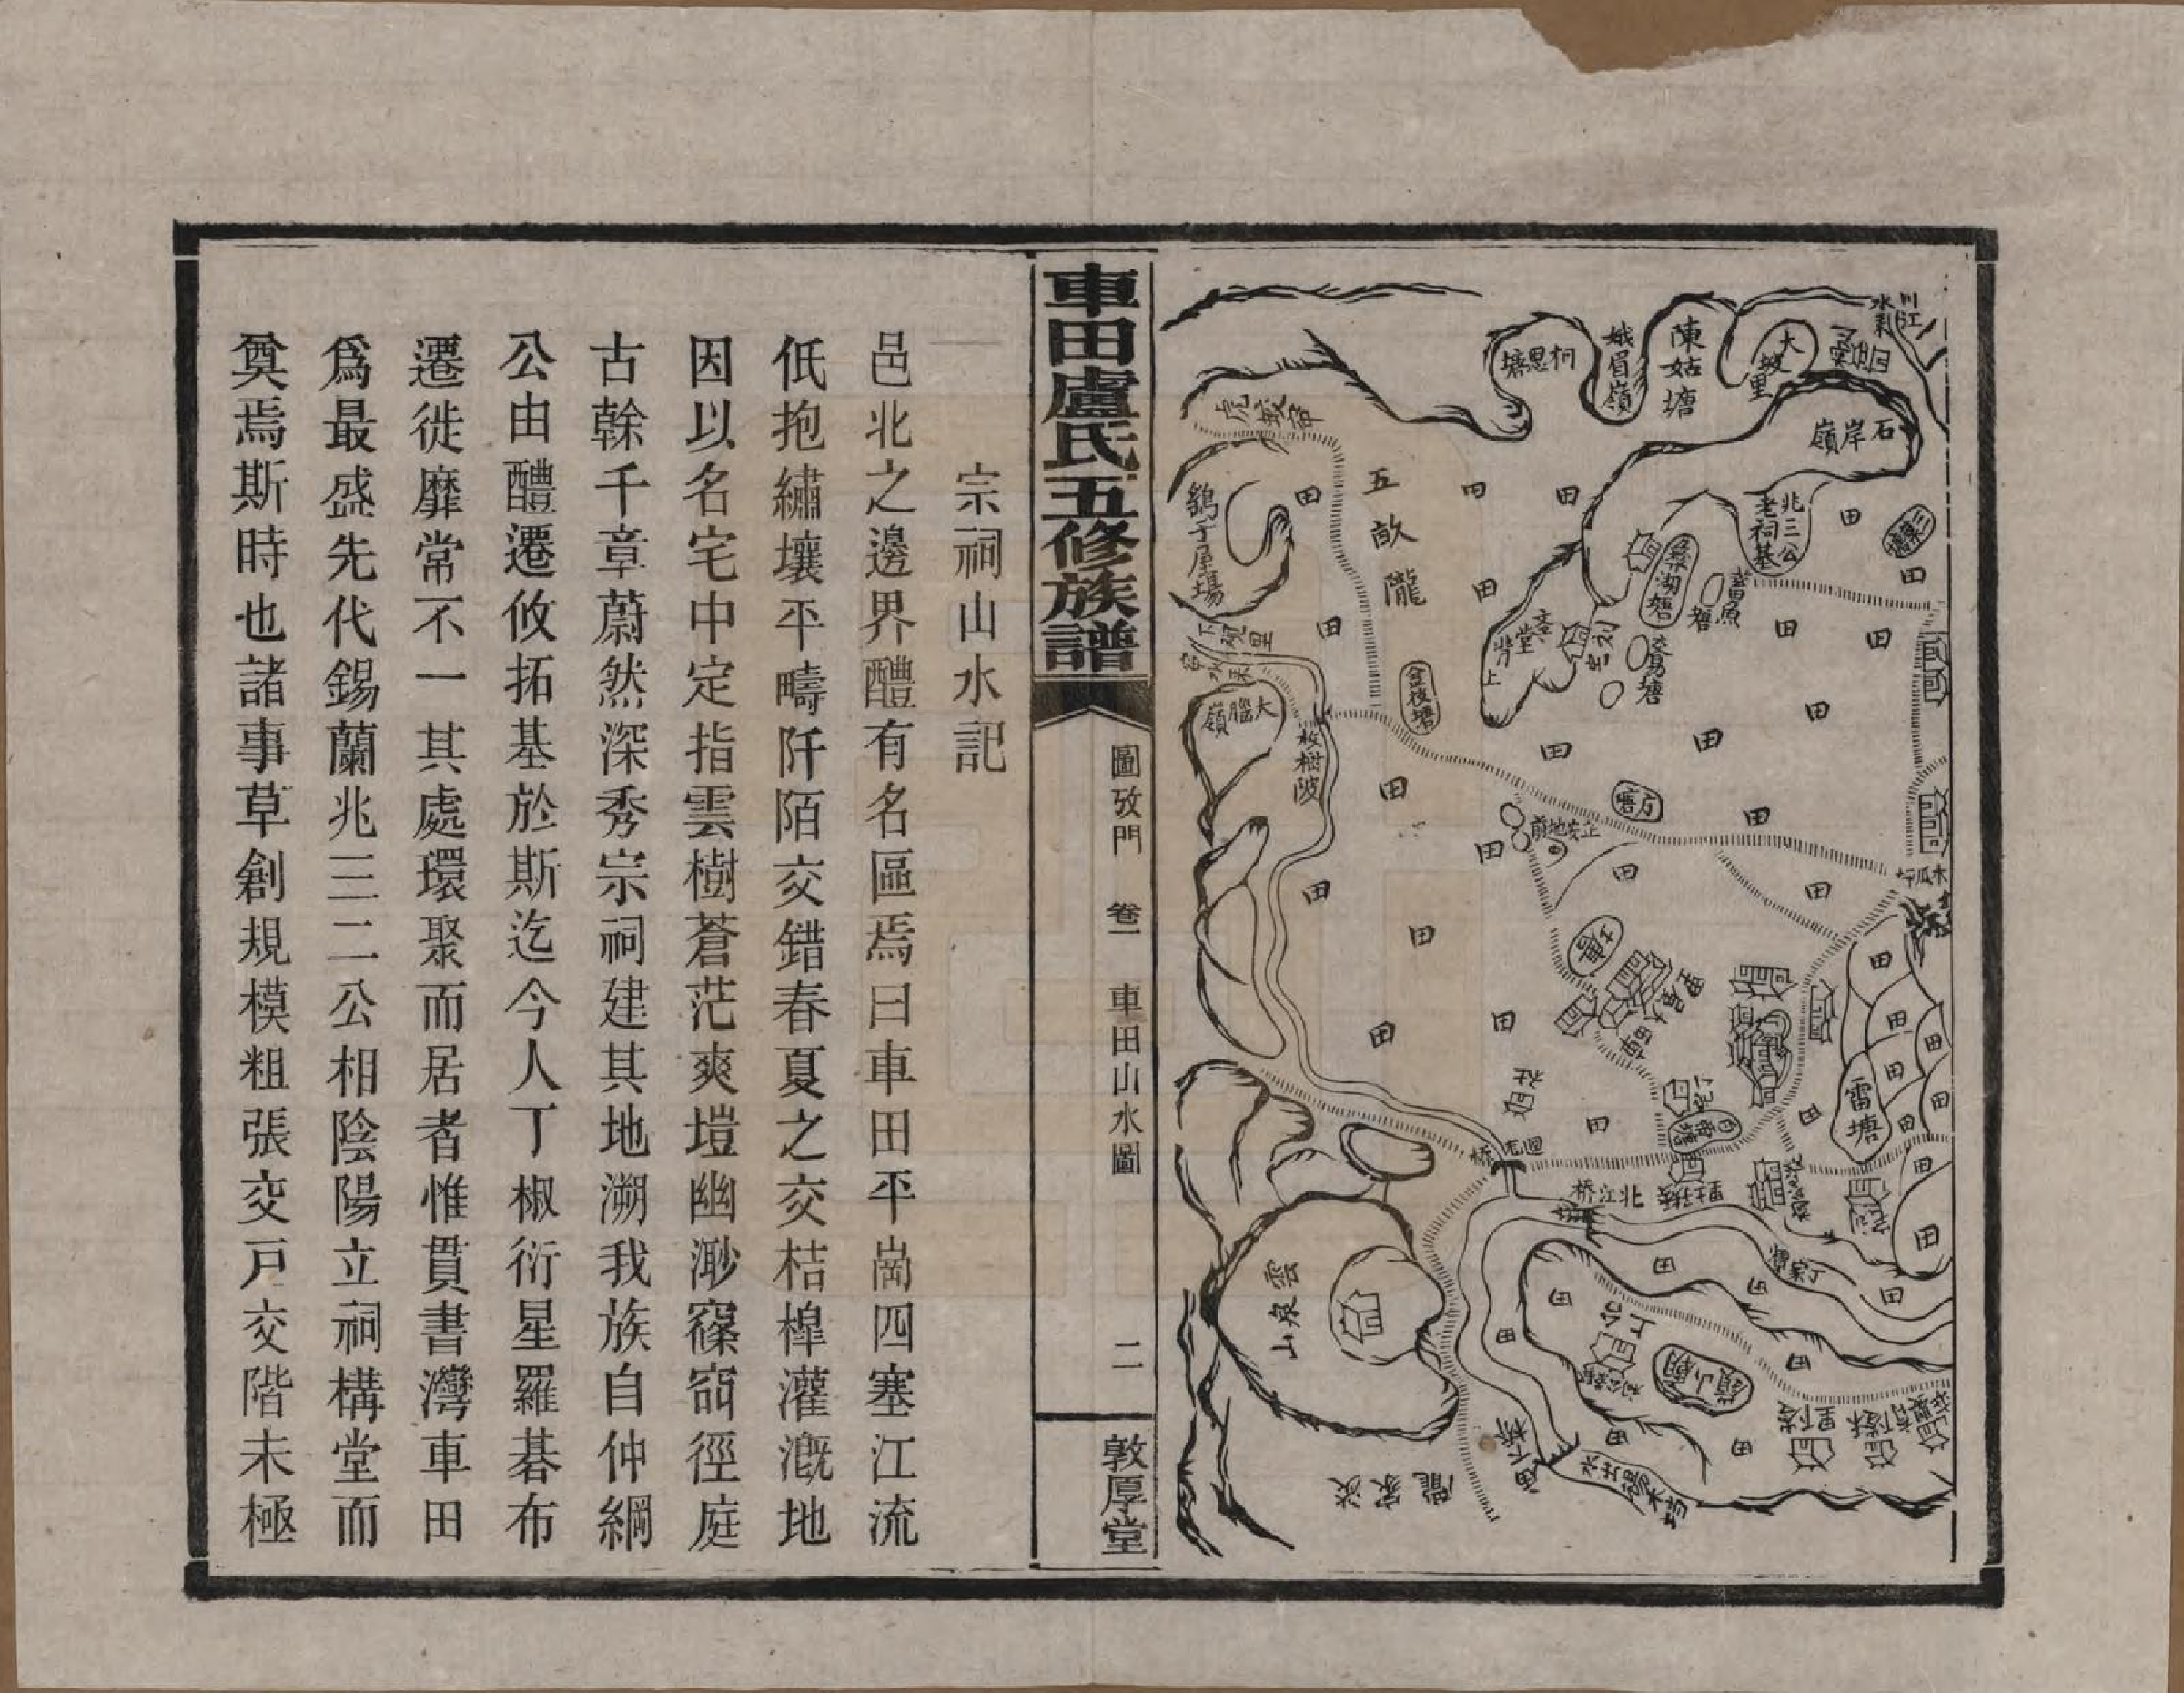 川江
水剥
石岸嶺
大塅里
陳姑塘
娥眉嶺
桐思塘
兆三公
老祠基
五畝隴
鷂子屋場
大腦嶺
枚樹陂
方塘
蓄魚塘
金枝塘
木瓜坪
田
雷塘
社
北江桥
丁家灣
雲泉山
鏡山廟
車田盧氏五修族譜
圖攷門 卷一 車田山水圖 二
敦厚堂
宗祠山水記
邑北之邊界醴有名區焉曰車田平崗四塞江流
低抱繡壤平疇阡陌交錯春夏之交桔槔灌溉地
因以名宅中定指雲樹蒼茫爽塏幽渺窱窱徑庭
古榦千章蔚然深秀宗祠建其地溯我族自仲綱
公由醴遷攸拓基於斯迄今人丁椒衍星羅碁布
遷徙靡常不一其處環聚而居者惟貫書灣車田
爲最盛先代錫蘭兆三二公相陰陽立祠構堂而
奠焉斯時也諸事草創規模粗張交戸交階未極